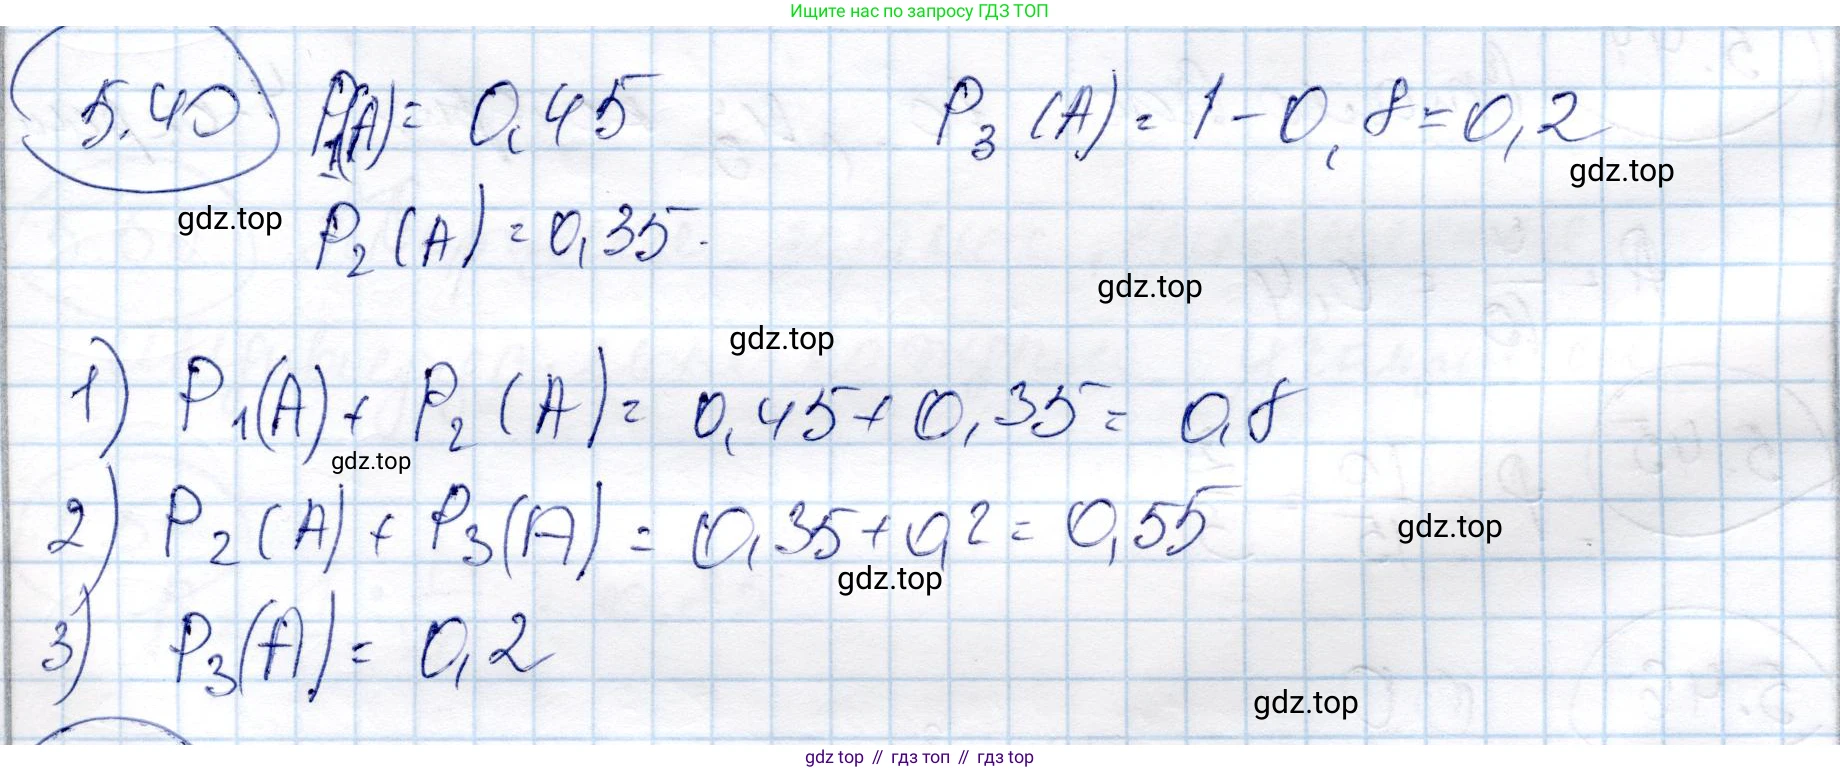 Ищите нас по запросу ГДЗ ТОП
5.40 P₁(A) = 0,45 P₃(A) = 1 - 0,8 = 0,2
gdz.top
gdz.top
P₂(A) = 0,35.
gdz.top
gdz.top
1) P₁(A) + P₂(A) = 0,45 + 0,35 = 0,8
gdz.top
2) P₂(A) + P₃(A) = 0,35 + 0,2 = 0,55
gdz.top
gdz.top
3) P₃(A) = 0,2
gdz.top
gdz top // гдз топ // гдз top